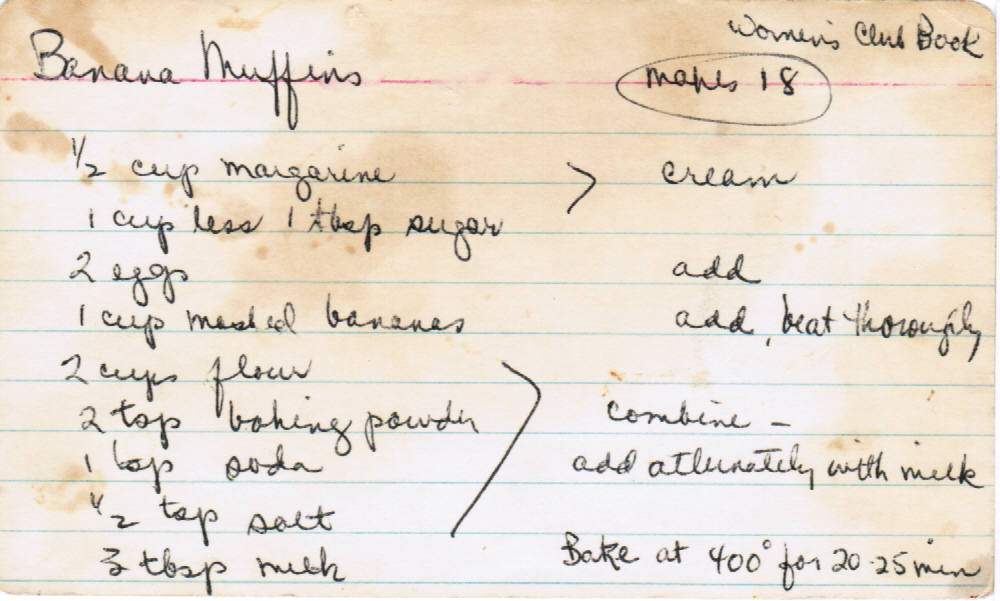 Women's Club Book
Banana Muffins
makes 18
1/2 cup margarine > cream
1 cup less 1 tbsp sugar
2 eggs add
1 cup mashed bananas add, beat thoroughly
2 cups flour
2 tsp baking powder combine -
1 tsp soda add alternately with milk
1/2 tsp salt
3 tbsp milk Bake at 400° for 20-25 min